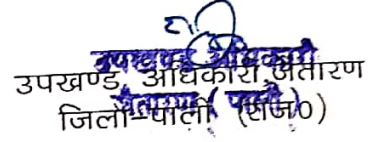 उपखण्ड अधिकारी
उपखण्ड अधिकारी जैतारण
जैतारण (पाली)
जिला-पाली (राज०)